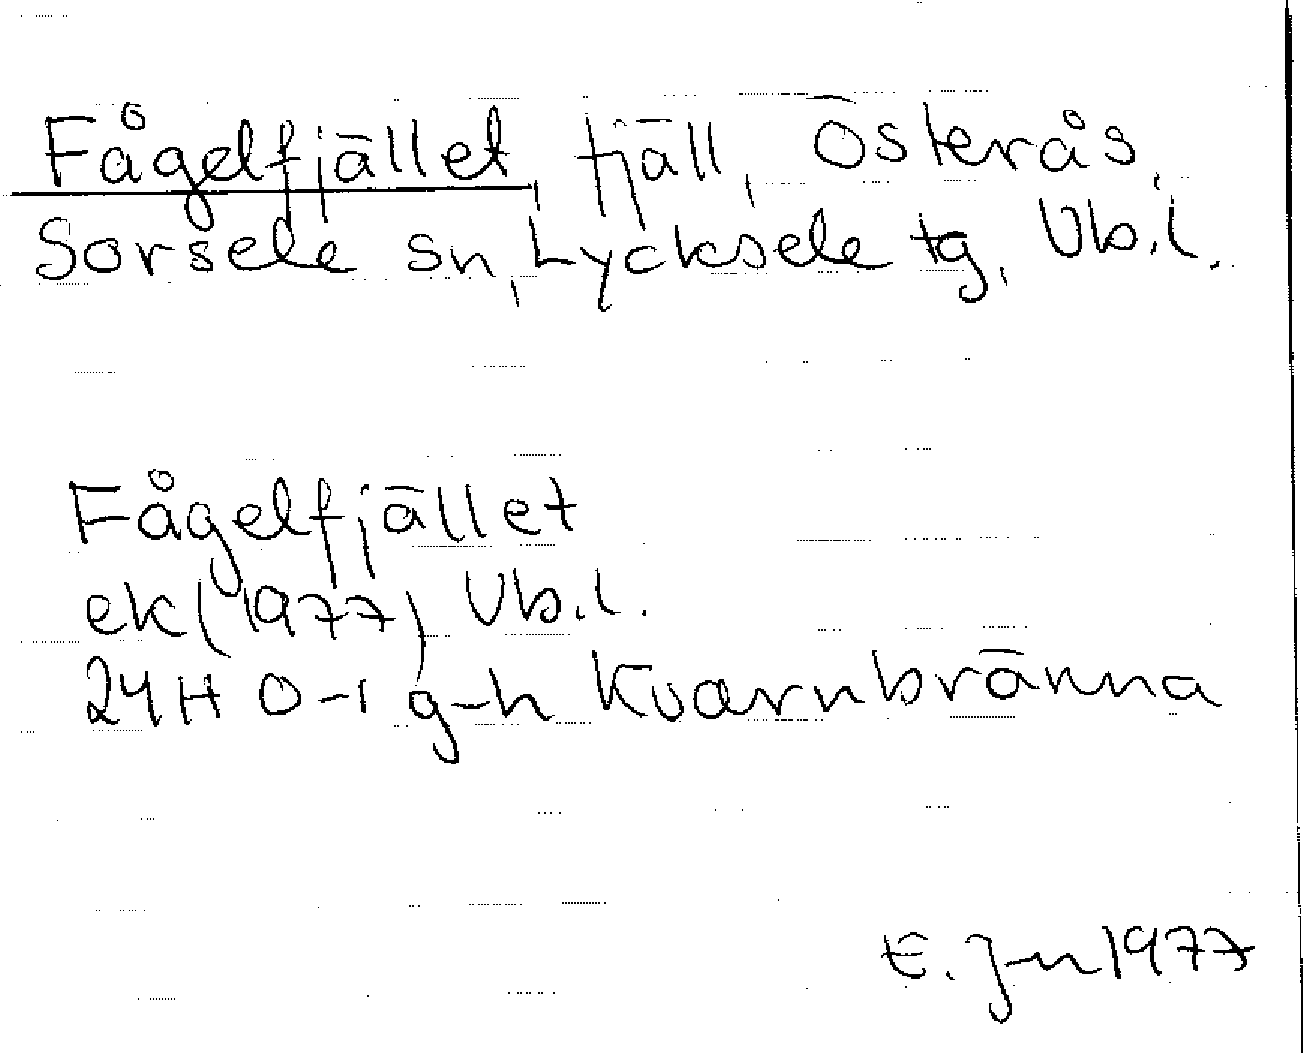 Fågelfjället, fjäll, Österås,
Sorsele sn, Lycksele tg, Vb.l.
Fågelfjället
ek (1977) Vb.l.
24H 0-1 g-h Kvarnbränna
E. J-n 1977